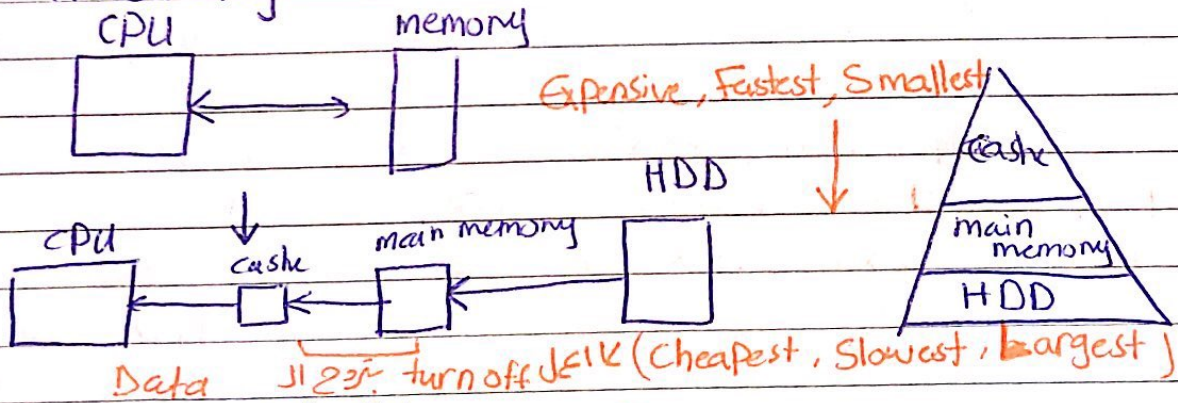 CPU
memory
Expensive, Fastest, Smallest
Cashe
main
memory
HDD
HDD
CPU
cashe
main memory
turn off (Cheapest, Slowest, Largest)
Data